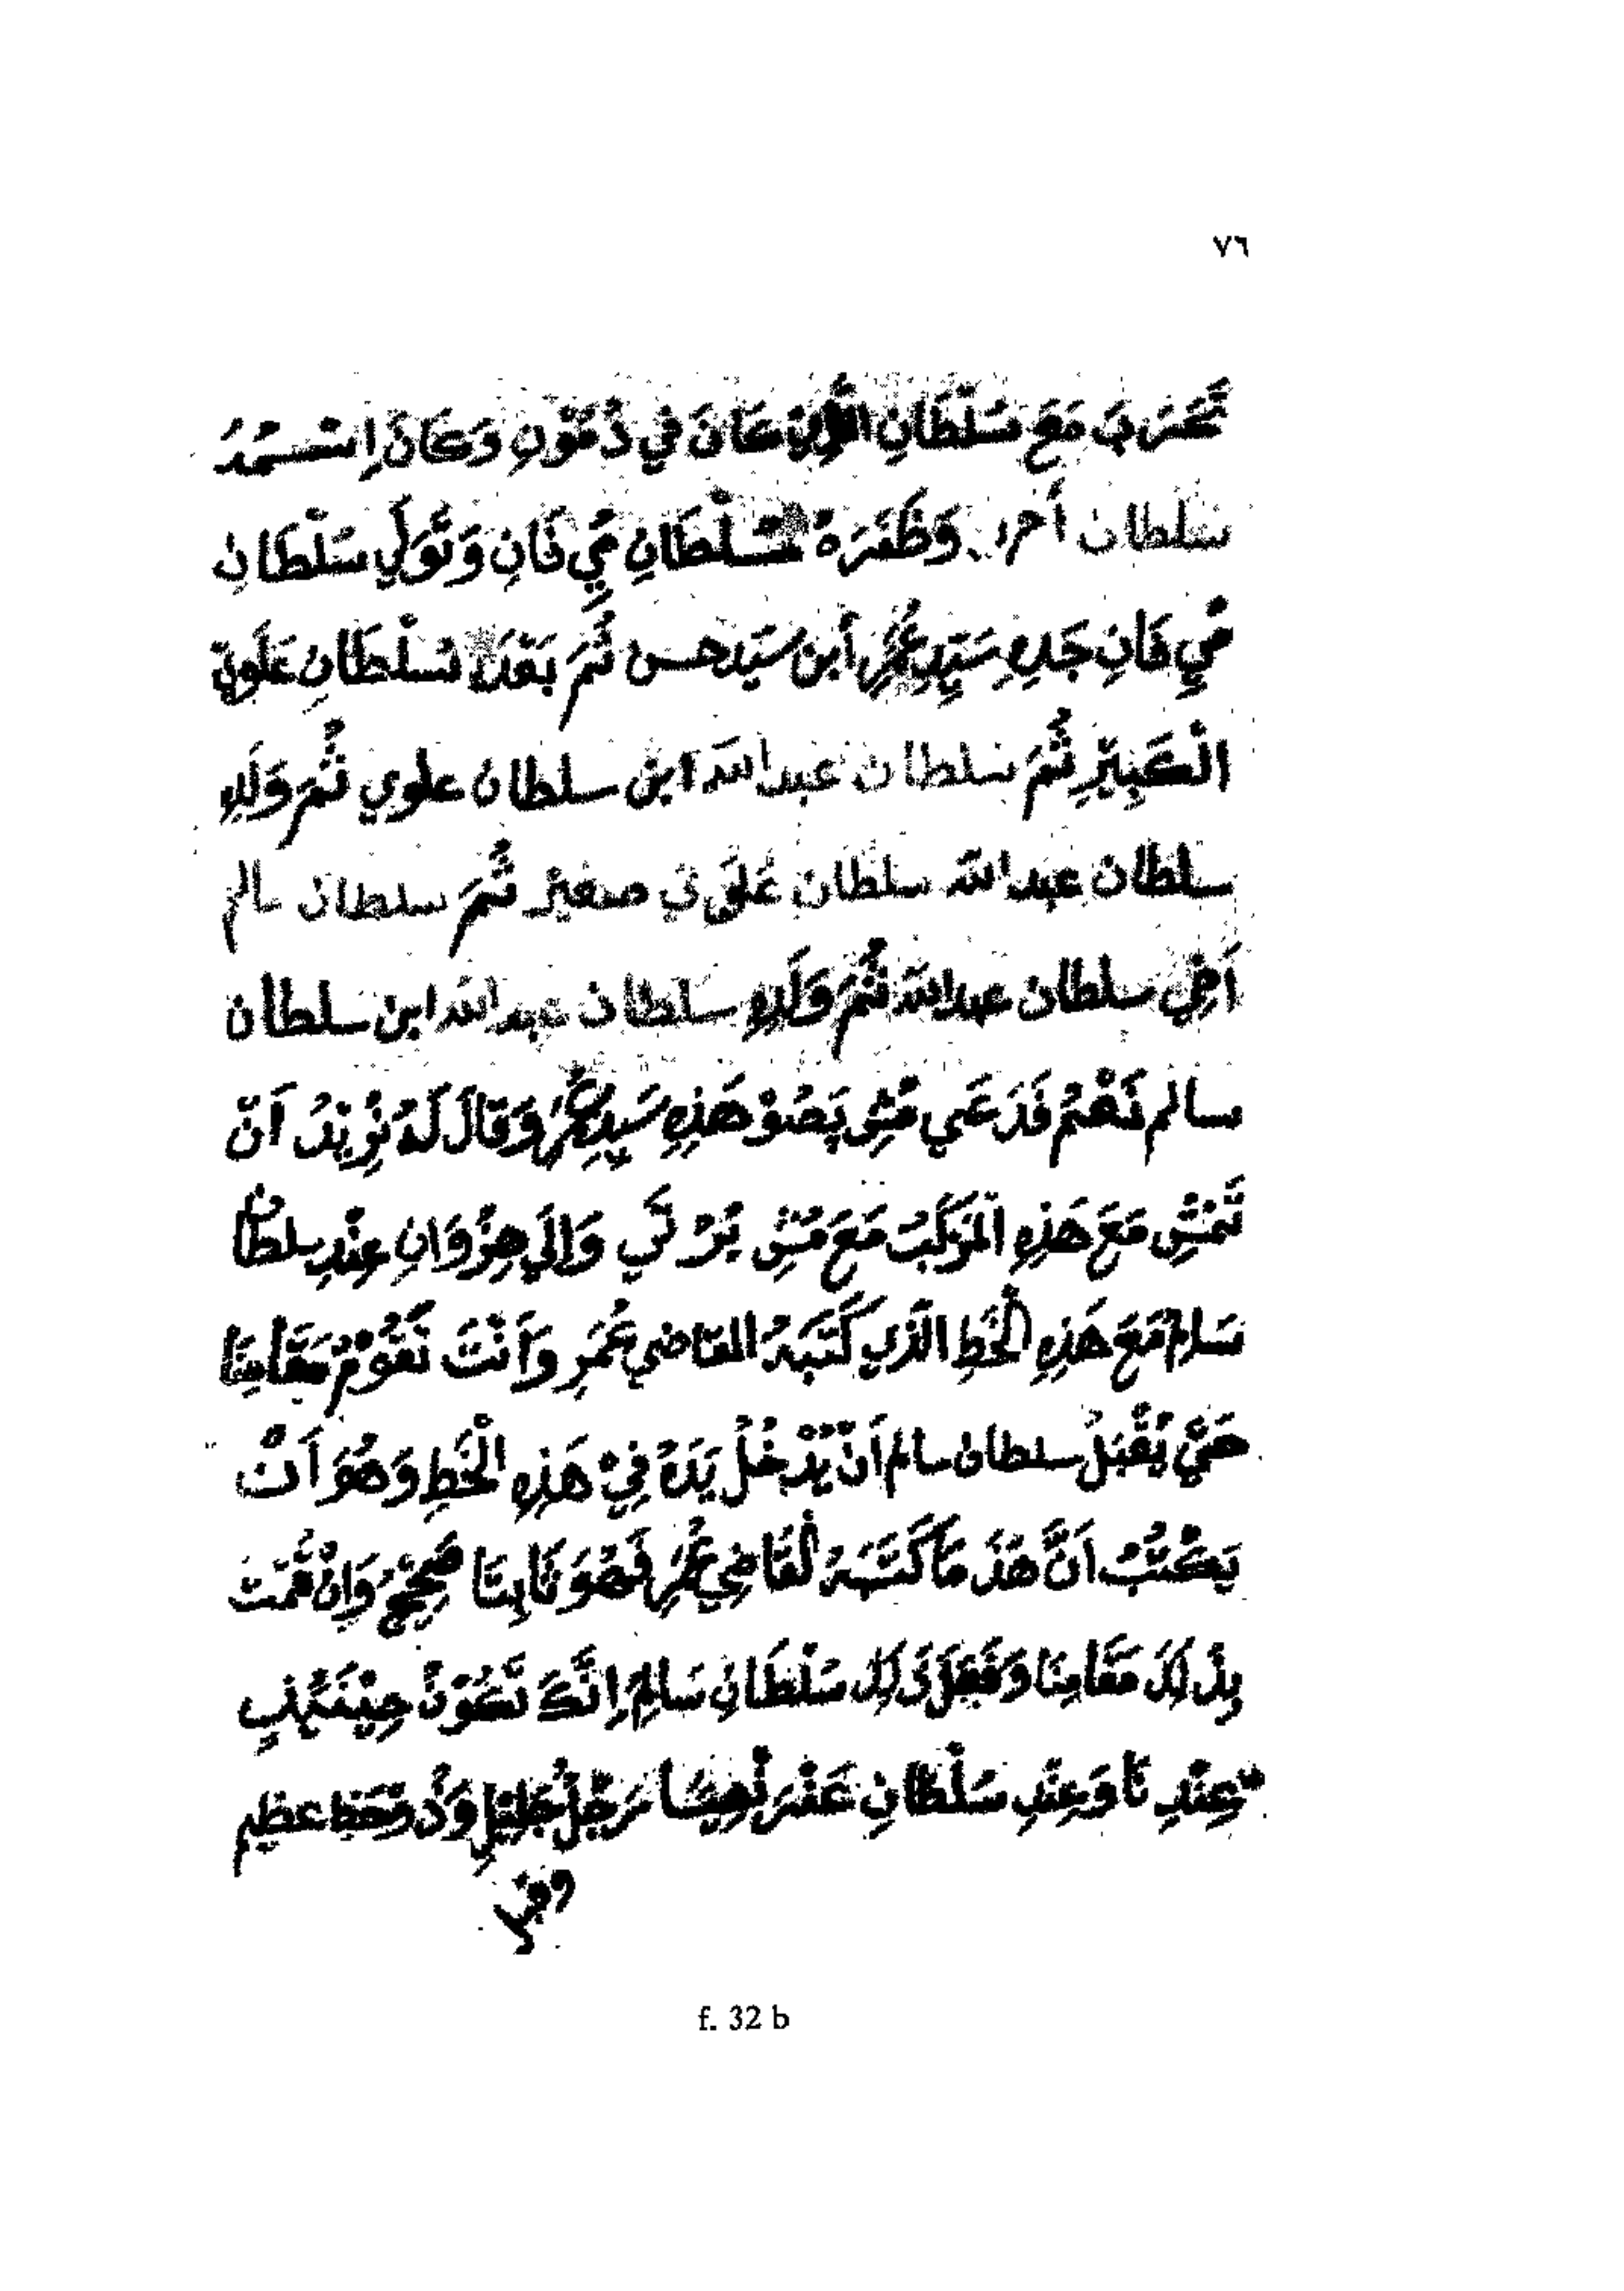 ٧٦
تَحَرَبَ مَعَ سُلْطَانِ الَّذِي كَانَ فِي دُمُوْنِ وَكَانَ اِسْمُهُ
سلطان أحمد وَظَفَرَهُ سُلْطَانِ مِي فَانِ وَتَوَلَّي سَلْطَانِ
مِي فَانِ جَدِهِ سَيِّدِ عُمَرِ أبن سَيِّد حسن ثُمَّ بَعْدَ سُلْطَانِ عَلَوِيّ
الْكَبِيْرِ ثُمَّ سلطان عبدالله ابن سلطان علوي ثُمَّ وَلَدِهِ
سلطان عبدالله سلطان عَلَوِي صغيْر ثُمَّ سلطان سالم
اَخِي سلطان عبدالله ثُمَّ وَلَدِهِ سلطان عبدالله ابن سلطان
سالم نَعَمْ فَدَعَي مُشِ پَصُوْ هَذِهِ سَيِّدِ عُمَرُ وَقَالَ لَهُ نُرِيْدُ اَنْ
تَمْشِ مَعَ هَذِهِ الْمَرْكَبْ مَعَ مُشِ بَرْ لَي وَاِلَي هِزُوَانِ عِنْدِ سلطان
سَلِمْ مَعَ هَذِهِ الْخَطِ الَّذِي كَتَبَهُ القاضي عُمَرِ وَاَنْتَ تَقُوْمُ مَقَامِنَا
حَتَّي يُقْبَلُ سلطان سالم اَنْ يُدْخُلُ يَدَهُ فِيْ هَذِهِ الْخَطِ وَهُوَ اَنْ
يَكْتُبُ اَنَّ هَذَ مَا كَتَبَهُ لْقَاضِي عُمَرِ فَهُوَ ثَابِتَا صَحِيْحٌ وَاِنْ قُمْتَ
بِذَلِكَ مَقَامِنَا وَفَعَلَ ذَلِكَ سُلْطَانِ سَالِمْ اِنَّكَ تَكُوْنُ حِيْنَئِذٍ
عِنْدِنَا وَعِنْدِ سُلْطَانِ عَنْفَرَنْصِيْسَا رَجُلٌ جَلِيْلٍ وَذُو حَظٍ عظيم
وفي
f. 32 b